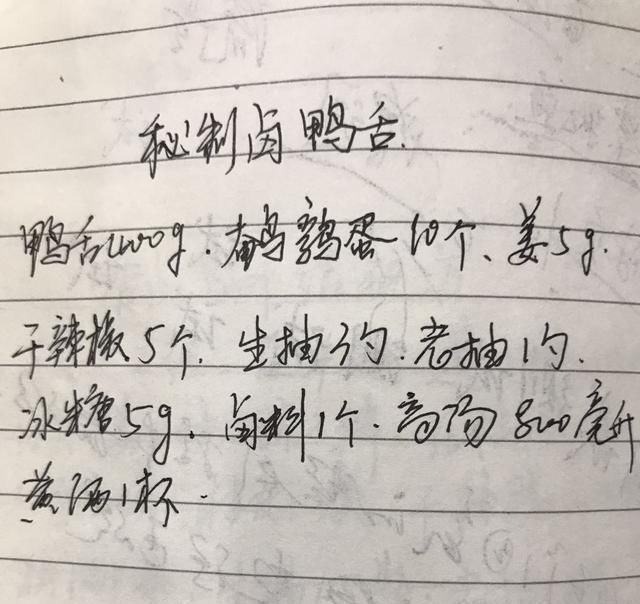 秘制卤鸭舌.
鸭舌400g.鹌鹑蛋10个、姜5g.
干辣椒5个.生抽3勺.老抽1勺.
冰糖5g.卤料1个.高汤800毫升
黄酒1杯.